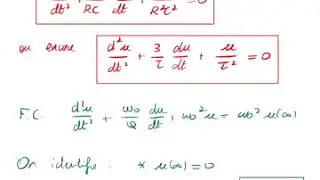 dt² RC dt R²C² = 0
ou encore d²u/dt² + 3/τ du/dt + u/τ² = 0
F.C. d²u/dt² + ω0/Q du/dt + ω0²u = ω0² u(∞)
On identifie : * u(∞) = 0